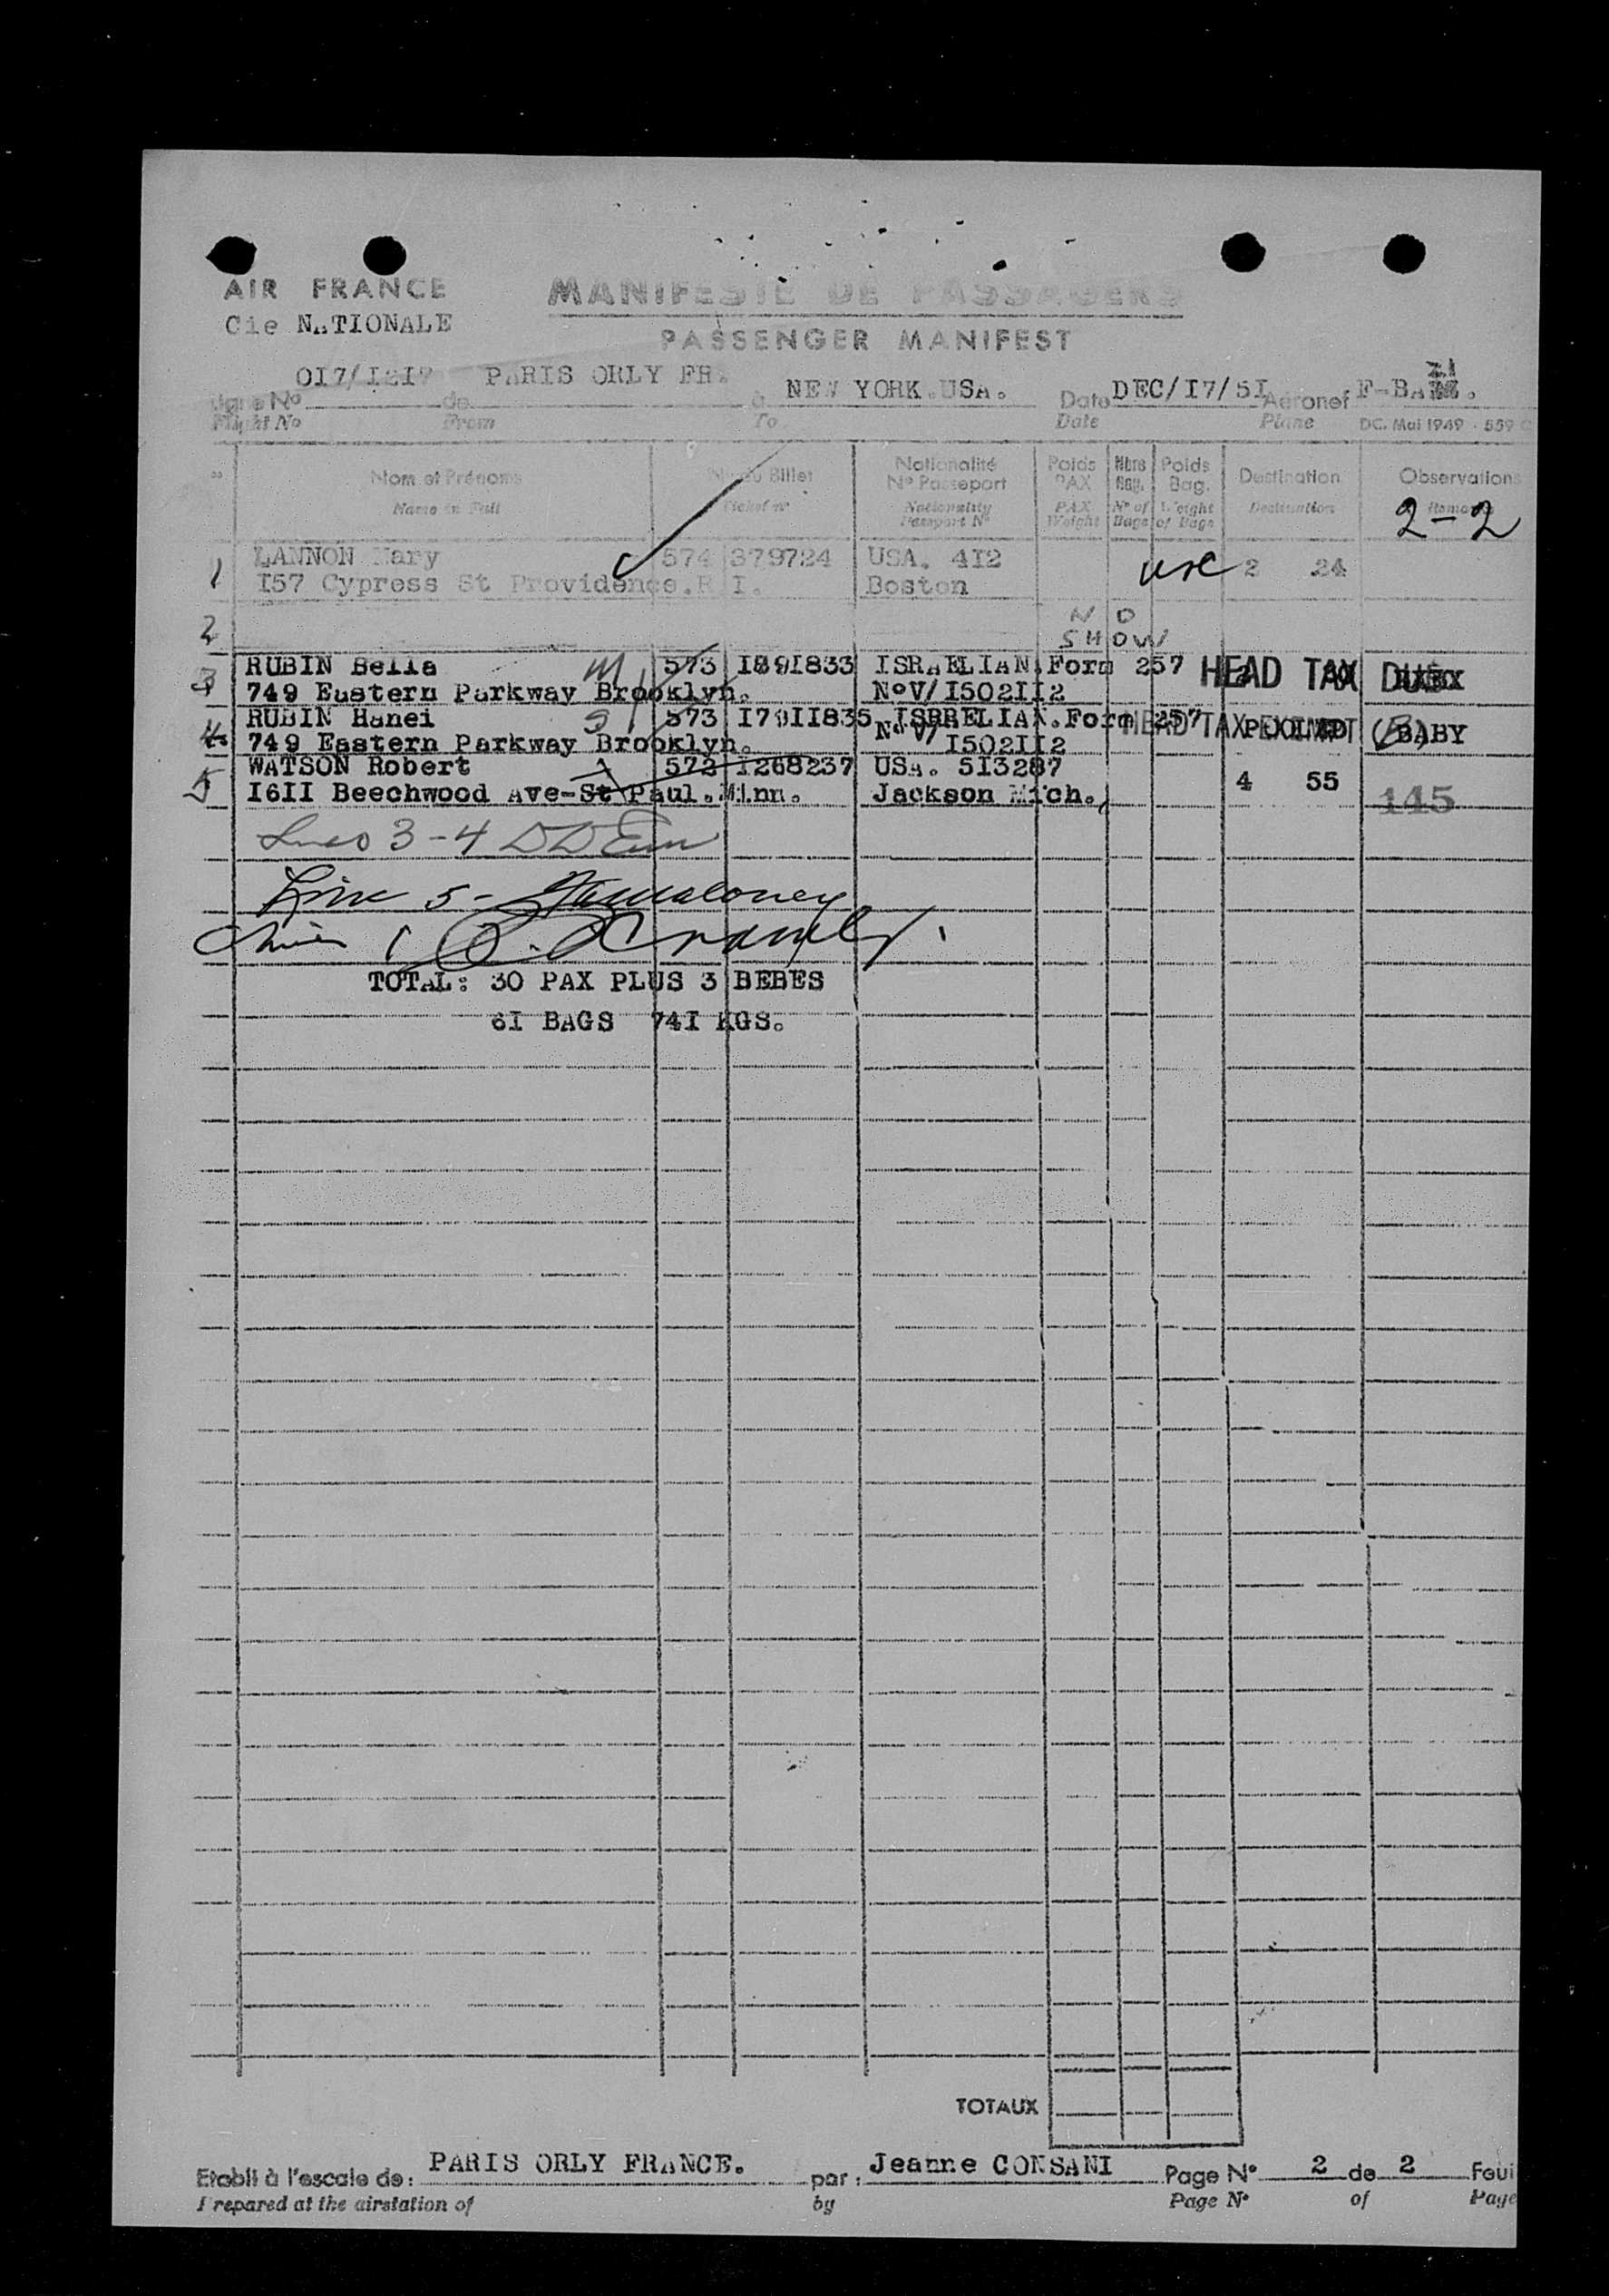 AIR FRANCE
Cie NATIONALE
MANIFESTE DE PASSAGERS
PASSENGER MANIFEST
PARIS ORLY FR.
NEW YORK.USA.
DEC/I7/5I
Ligne No de à Date Aéronef
Flight No From To Date Plane DC. Mai 1949 - 559 C
Nom et Prénoms No du Billet Nationalité No Passeport Poids PAX Nbre Bag. Poids Bag. Destination Observations
Name in Full Ticket No Nationality Passport No PAX Weight No of Bags Weight of Bags Destination Remarks
2-2
1 LANNON Mary 574 379724 USA. 4I2 usc 2 24
I57 Cypress St Providence.R I. Boston
2 NO SHOW
3 RUBIN Bella M 573 I89I833 ISRAELIAN.Form 257 HEAD TAX DUE
749 Eastern Parkway Brooklyn. NoV/I502II2
4 RUBIN Hanei S 573 I79II835 ISRRELIAN.Form 257 HEAD TAX EXEMPT BABY
749 Eastern Parkway Brooklyn. NoV/I502II2
5 WATSON Robert 572 I268237 USA. 5I3287 4 55
I6II Beechwood Ave-St Paul.Minn. Jackson Mich. 145
Lines 3-4
Line 5-
TOTAL: 30 PAX PLUS 3 BEBES
6I BAGS 74I KGS.
TOTAUX
Etabli à l'escale de: PARIS ORLY FRANCE. par: Jeanne CONSANI Page No 2 de 2 Feui
Prepared at the airstation of by Page No of Page